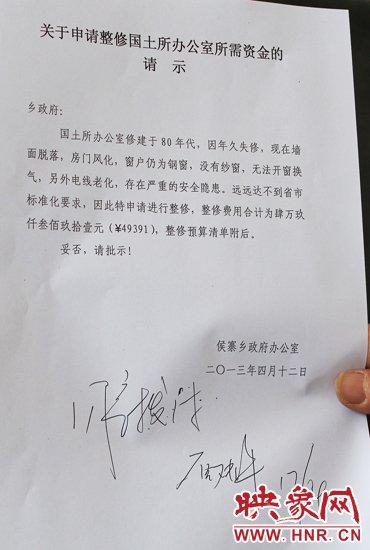 关于申请整修国土所办公室所需资金的
请 示
乡政府:
国土所办公室修建于80年代，因年久失修，现在墙
面脱落，房门风化，窗户仍为钢窗，没有纱窗，无法开窗换
气，另外电线老化，存在严重的安全隐患。远远达不到省市
标准化要求，因此特申请进行整修，整修费用合计为肆万玖
仟叁佰玖拾壹元（¥49391），整修预算清单附后。
妥否，请批示！
侯寨乡政府办公室
二〇一三年四月十二日
映象网
WWW.HNR.CN